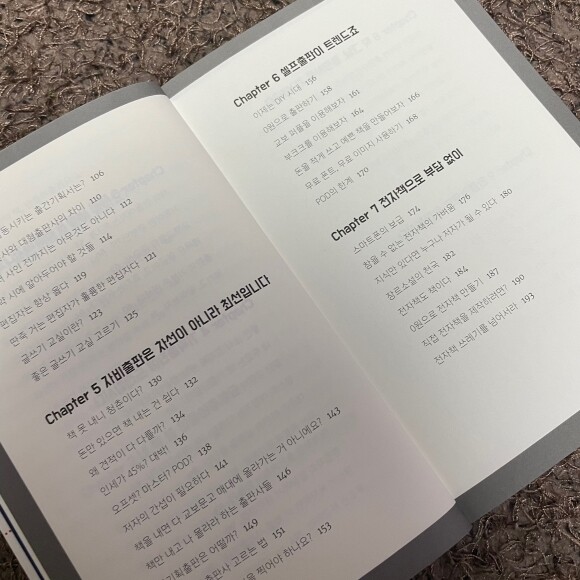 동시키는 출간기획서는? 106
사와 대형출판사의 차이 110
사인 전까지는 아무것도 아니다 112
약 시에 알아두어야 할 것들 114
편집자는 항상 옳다 119
만족 가는 편집자가 훌륭한 편집자다 121
글쓰기 교실이란? 123
좋은 글쓰기 교실 고르기 125
Chapter 5 자비출판은 차선이 아니라 최선입니다
책 못 내니 청춘이다? 130
돈만 있으면 책 내는 건 쉽다 132
왜 견적이 다 다를까? 134
인세가 45%? 대박! 136
오프셋? 마스터? POD? 138
저자의 간섭이 필요하다 141
책을 내면 다 교보문고 매대에 올라가는 거 아니에요? 143
책만 내고 나 몰라라 하는 출판사들 146
기획출판은 어떨까? 149
출판사 고르는 법 151
을 찍어야 하나요? 153
Chapter 6 셀프출판이 트렌드죠
이제는 DIY 시대 156
0원으로 출판하기 158
교보 퍼플을 이용해보자 161
부크크를 이용해보자 164
돈을 적게 쓰고 예쁜 책을 만들어보자 166
무료 폰트, 무료 이미지 사용하기 168
POD의 한계 170
Chapter 7 전자책으로 부담 없이
스마트폰의 보급 174
참을 수 없는 전자책의 가벼움 176
지식만 있다면 누구나 저자가 될 수 있다 180
장르소설의 천국 182
전자책도 책이다 184
0원으로 전자책 만들기 187
직접 전자책을 제작하려면? 190
전자책 쓰레기를 넘어서라 193